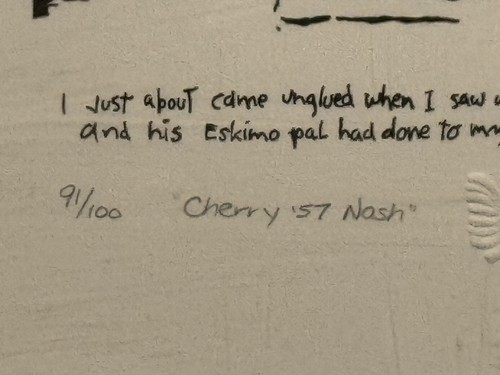 I Just about came unglued when I saw
and his Eskimo pal had done to my
91/100 "Cherry '57 Nash"